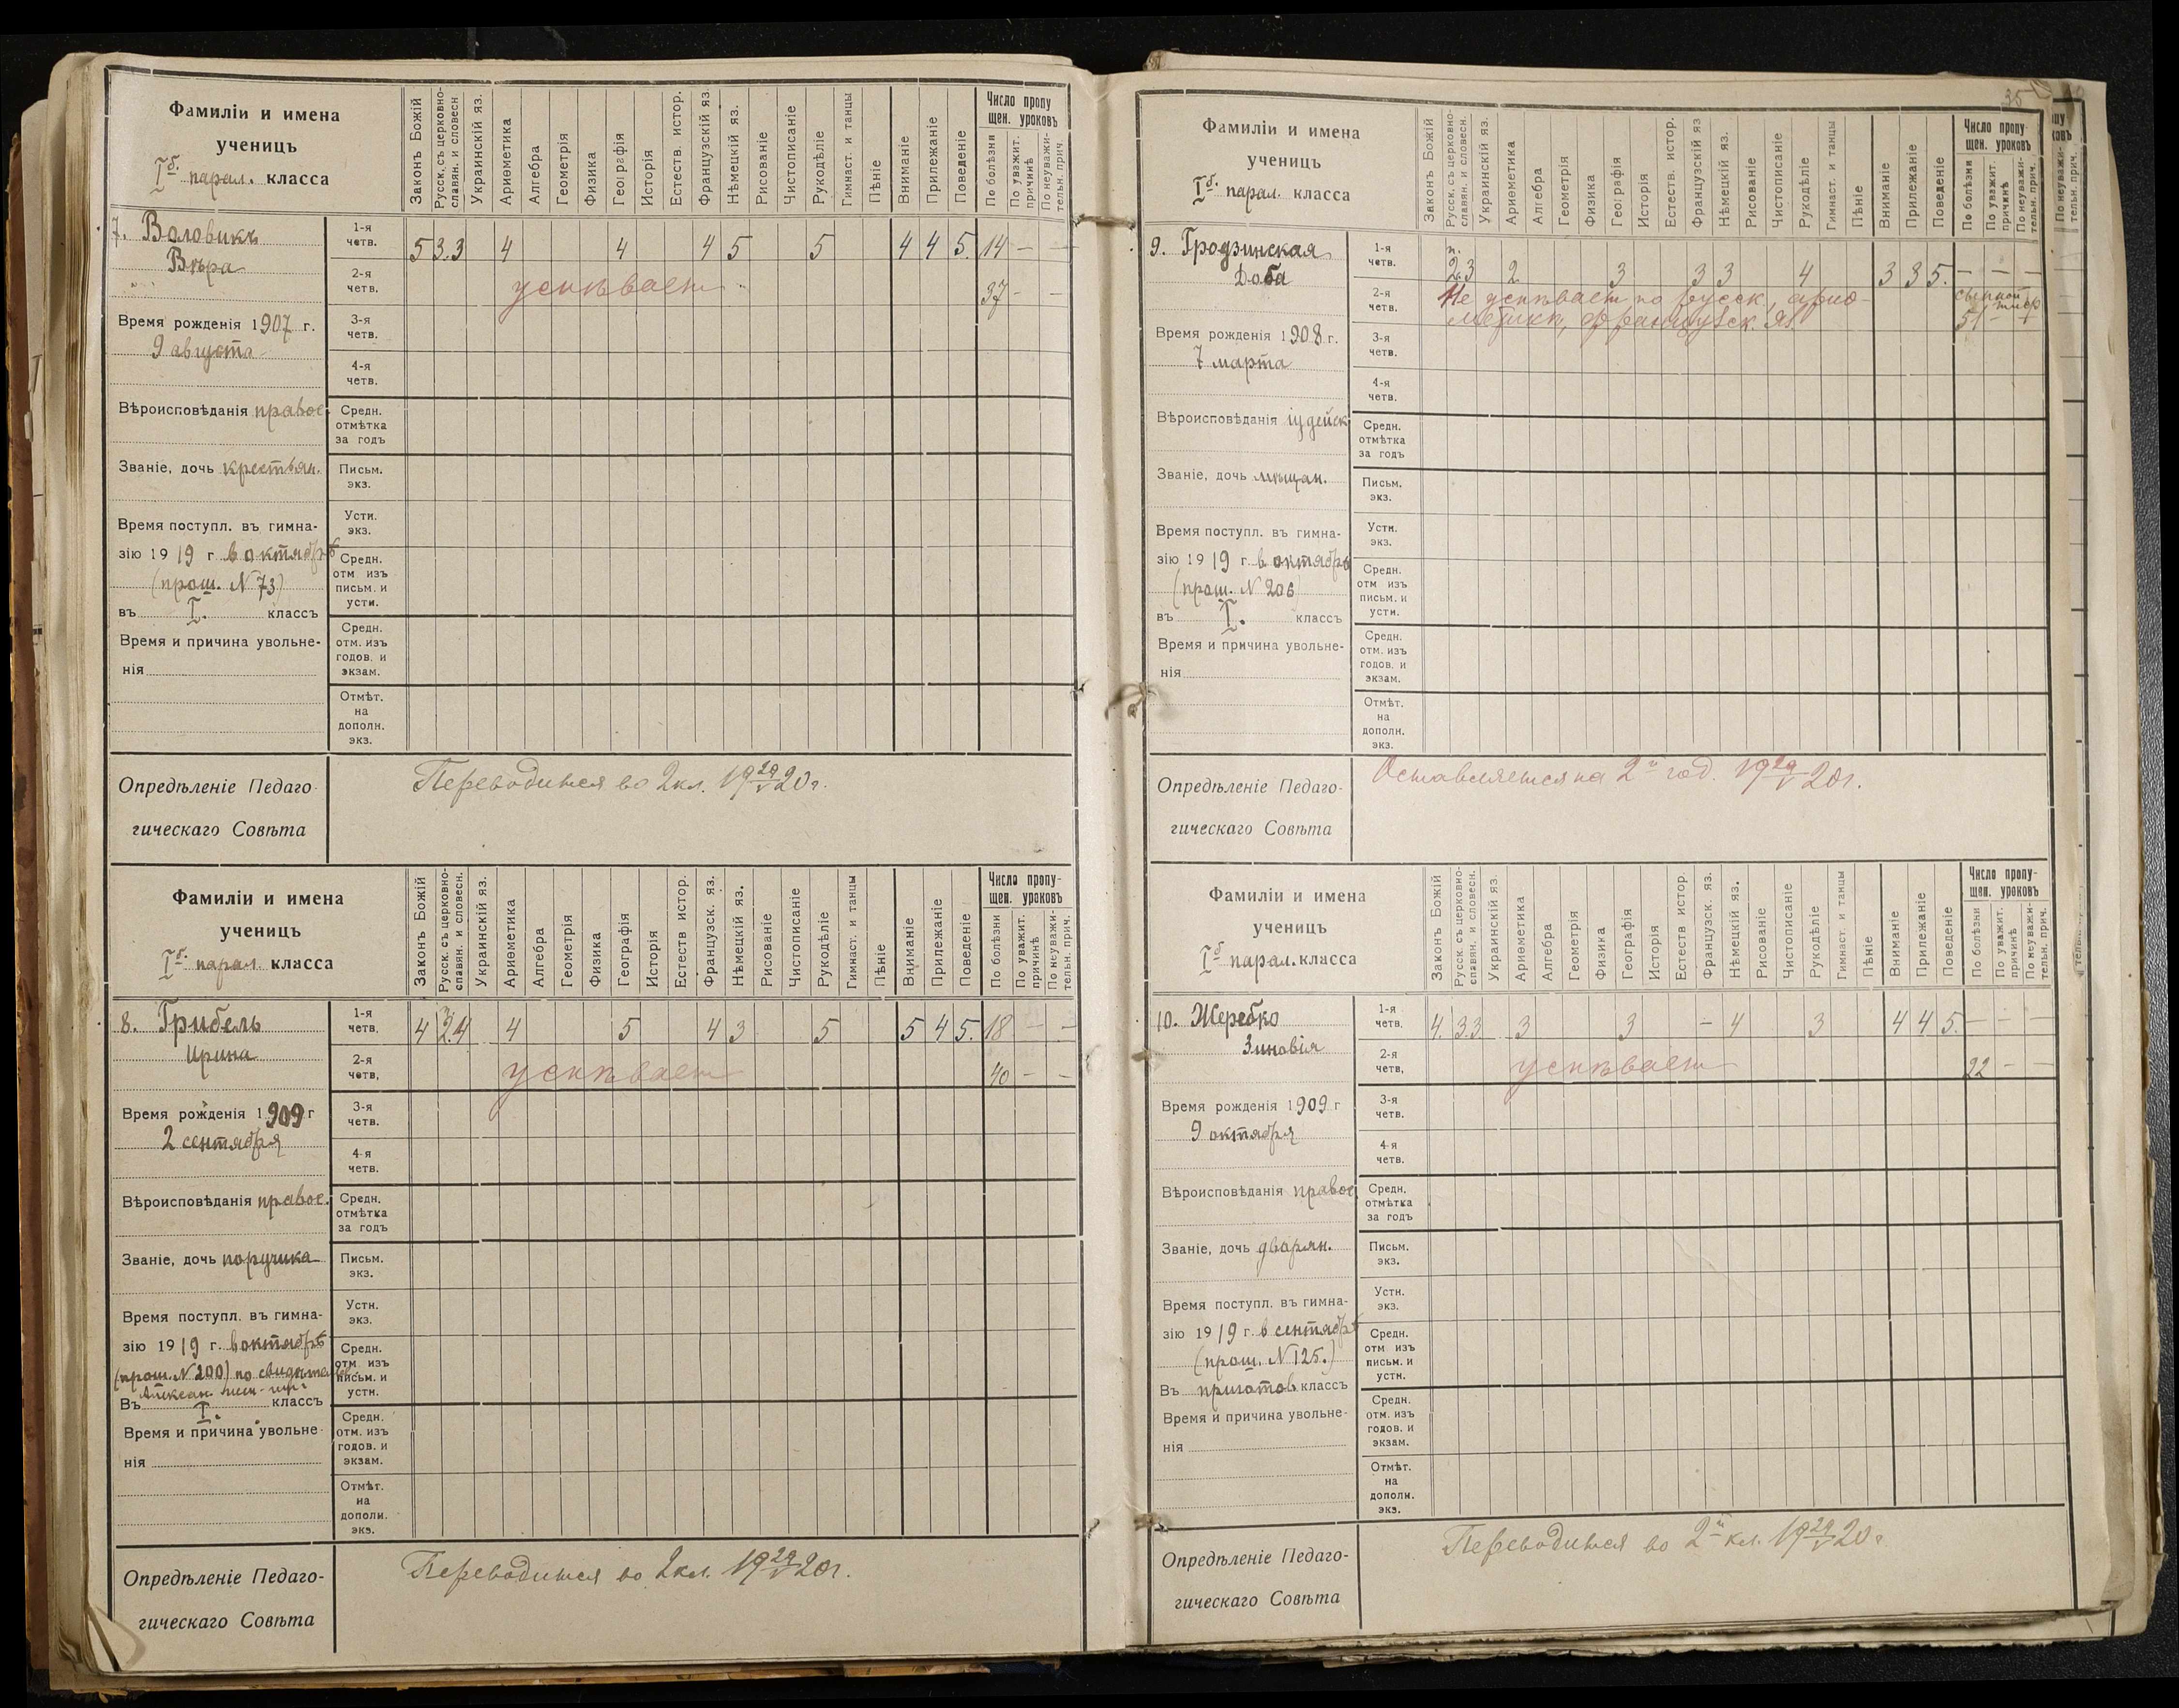 Фамиліи и имена
ученицъ
Iб. парал. класса
Законъ Божій
Русск. съ церковно-
славян. и словесн
Украинскій яз.
Ариѳметика
Алгебра
Геометрія
Физика
Географія
Исторія
Естеств. истор.
Французскій яз.
Нѣмецкій яз.
Рисованіе
Чистописаніе
Рукодѣліе
Гимнаст. и танцы
Пѣніе
Вниманіе
Прилежаніе
Поведеніе
Число пропу
щен. уроковъ
По болѣзни
По уважит.
причинѣ
По неуважи-
тельн. прич.
7. Воловикъ
Вѣра
1-я
четв.
5 3.3 4 4 4 5 5 4 4 5. 14 — —
2-я
четв.
успѣваетъ
37 — —
Время рожденія 1907 г.
9 августа
3-я
четв.
4-я
четв.
Вѣроисповѣданія правос.
Средн.
отмѣтка
за годъ
Званіе, дочь крестьян.
Письм.
экз.
Время поступл. въ гимна-
зію 1919 г. в октябрѣ
(прош. № 73)
въ I. классъ
Устн.
экз.
Средн.
отм изъ
письм. и
устн.
Время и причина увольне-
нія
Средн.
отм. изъ
годов. и
экзам.
Отмѣт.
на
дополн.
экз.
Опредѣленіе Педаго-
гическаго Совѣта
Переводится во 2 кл. 19 29/V 20 г.
Фамиліи и имена
ученицъ
Iб. парал. класса
Законъ Божій
Русск. съ церковно-
славян. и словесн.
Украинскій яз.
Ариѳметика
Алгебра
Геометрія
Физика
Географія
Исторія
Естеств истор.
Французск. яз.
Нѣмецкій яз.
Рисованіе
Чистописаніе
Рукодѣліе
Гимнаст. и танцы
Пѣніе
Вниманіе
Прилежаніе
Поведеніе
Число пропу-
щен. уроковъ
По болѣзни
По уважит.
причинѣ
По неуважи-
тельн. прич.
8. Грибель
Ирина
1-я
четв.
4 4 4 5 4 3 5 5 4 5. 18 — —
2-я
четв.
успѣваетъ
40 — —
Время рожденія 1909 г
2 сентября
3-я
четв.
4-я
четв.
Вѣроисповѣданія правос.
Средн.
отмѣтка
за годъ
Званіе, дочь поручика
Письм.
экз.
Время поступл. въ гимна-
зію 1919 г. в октябрѣ
(прош. № 200) по
Въ I. классъ
Устн.
экз.
Средн.
отм изъ
письм. и
устн.
Время и причина увольне-
нія
Средн.
отм. изъ
годов. и
экзам.
Отмѣт.
на
дополн.
экз.
Опредѣленіе Педаго-
гическаго Совѣта
Переводится во 2 кл. 19 29/V 20 г.
35
Фамиліи и имена
ученицъ
Iб. парал. класса
Законъ Божій
Русск. съ церковно-
славян. и словесн.
Украинскій яз.
Ариѳметика
Алгебра
Геометрія
Физика
Географія
Исторія
Естеств. истор.
Французскій яз
Нѣмецкій яз.
Рисованіе
Чистописаніе
Рукодѣліе
Гимнаст. и танцы
Пѣніе
Вниманіе
Прилежаніе
Поведеніе
Число пропу-
щен. уроковъ
По болѣзни
По уважит.
причинѣ
По неуважи-
тельн. прич.
По неуважи-
тельн. прич.
9. Гродзинская
Доба
1-я
четв.
2.3 2 3 3 3 4 3 3 5. — — —
2-я
четв.
Не успѣваетъ по русск., ариѳ-
метикѣ, французск. яз.
сыпной
тиф
51 — —
Время рожденія 1908 г.
7 марта
3-я
четв.
4-я
четв.
Вѣроисповѣданія іудейск.
Средн.
отмѣтка
за годъ
Званіе, дочь мѣщан.
Письм.
экз.
Время поступл. въ гимна-
зію 1919 г. в октябрѣ
(прош. № 206)
въ I. классъ
Устн.
экз.
Средн.
отм изъ
письм. и
устн.
Время и причина увольне-
нія
Средн.
отм. изъ
годов. и
экзам.
Отмѣт.
на
дополн.
экз.
Опредѣленіе Педаго-
гическаго Совѣта
Оставляется на 2й год. 19 29/V 20 г.
Фамиліи и имена
ученицъ
Iб парал. класса
Законъ Божій
Русск. съ церковно-
славян. и словесн.
Украинскій яз.
Ариѳметика
Алгебра
Геометрія
Физика
Географія
Исторія
Естеств истор
Француzск. яз.
Нѣмецкій яз.
Рисованіе
Чистописаніе
Рукодѣліе
Гимнаст. и танцы
Пѣніе
Вниманіе
Прилежаніе
Поведеніе
Число пропу-
щен. уроковъ
По болѣзни
По уважит.
причинѣ
По неуважи-
тельн. прич.
10. Жеребко
Зиновія
1-я
четв.
4. 3.3 3 3 — 4 3 4 4 5. — — —
2-я
четв.
успѣваетъ
22 — —
Время рожденія 1909 г
9 октября
3-я
четв.
4-я
четв.
Вѣроисповѣданія правос.
Средн.
отмѣтка
за годъ
Званіе, дочь дворян.
Письм.
экз.
Время поступл. въ гимна-
зію 1919 г. в сентябрѣ
(прош. № 125.)
Въ приготов. классъ
Устн.
экз.
Средн.
отм изъ
письм. и
устн.
Время и причина увольне-
нія
Средн.
отм. изъ
годов. и
экзам.
Отмѣт.
на
дополн.
экз.
Опредѣленіе Педаго-
гическаго Совѣта
Переводится во 2й кл. 19 29/V 20 г